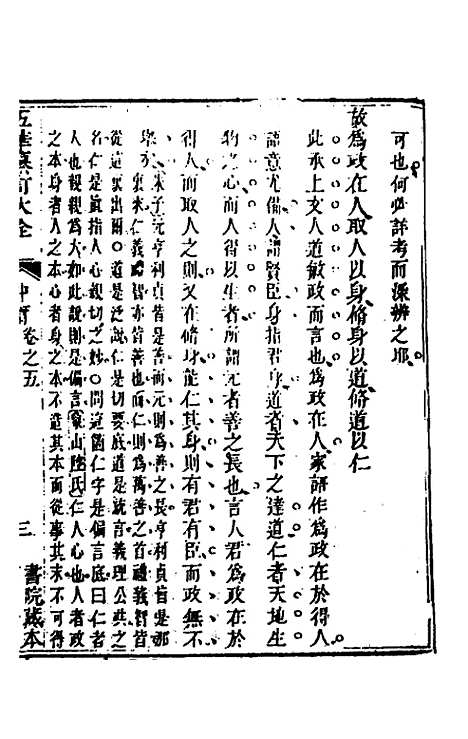 可也何必詳考而深辨之耶
故爲政在人取人以身脩身以道脩道以仁
此承上文人道敏政而言也爲政在人家語作爲政在於得人
語意尤備人謂賢臣身指君身道者天下之達道仁者天地生
物之心而人得以生者所謂元者善之長也言人君爲政在於
得人而取人之則又在脩身能仁其身則有君有臣而政無不
舉矣
朱子元亨利貞皆是善而元則爲善之長亨利貞皆是那
裏來仁義禮智亦皆善也而仁則爲萬善之首禮義智皆
從這裏出爾○道是泛說仁是切要底道是統言義理公共之
名仁是直指人心親切之妙○問這箇仁字是偏言底曰仁者
人也親親爲大如此說則是偏言 象山陸氏仁人心也人者政
之本身者人之本心者身之本不造其本而從事其末不可得
五華纂訂大全 中庸卷之五 三 書院藏本